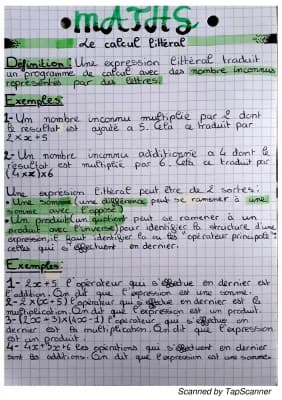 • MATHS •
Le calcul littéral
Définition: Une expression littéral traduit
un programme de calcul avec des nombre inconnus
représentés par des lettres.
Exemples
1- Un nombre inconnu multiplié par 2 dont
le résultat est ajouté a 5. Cela ce traduit par
2×x+5
2- Un nombre inconnu additionné a 4 dont le
résultat est multiplié par 6. Cela ce traduit par
(4+x)×6
Une expression littéral peut être de 2 sortes:
• Une somme (une différence peut se ramener à une
somme avec l'opposé)
• Un produit (un quotient peut se ramener à un
produit avec l'inverse) pour identifier la structure d'une
expression, il faut identifier la ou les "opérateur principaux":
celles qui s'effectuent en dernier.
Exemples
1- 2x+5 l'opérateur qui s'effectue en dernier est
l'addition. On dit que l'expression est une somme.
2- 2×(x+5) l'opérateur qui s'effectue en dernier est la
multiplication. On dit que l'expression est un produit.
3- (2x+3)×(4x-1) l'opérateur qui s'effectue en
dernier est la multiplication. On dit que l'expression
est un produit.
4- 4x+5x+6 les opérations qui s'effectuent en dernier
sont les additions. On dit que l'expression est une somme.
Scanned by TapScanner